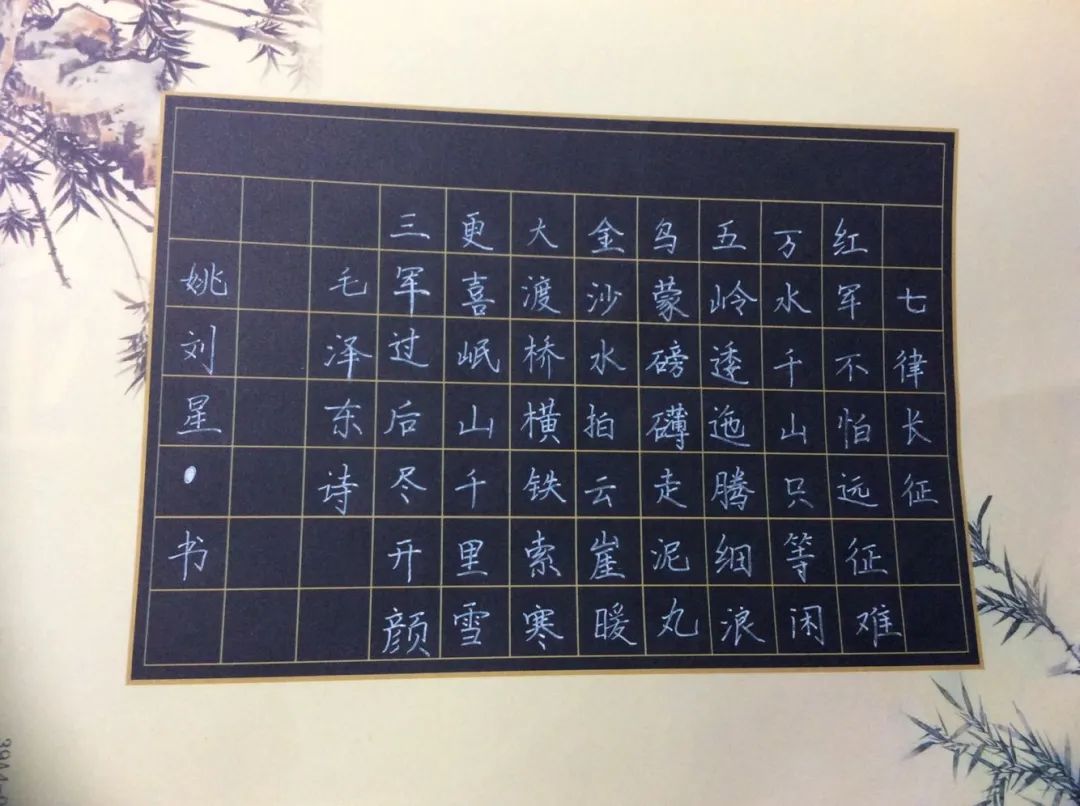 七律长征
红军不怕远征难
万水千山只等闲
五岭逶迤腾细浪
乌蒙磅礴走泥丸
金沙水拍云崖暖
大渡桥横铁索寒
更喜岷山千里雪
三军过后尽开颜
毛泽东诗
姚刘星·书